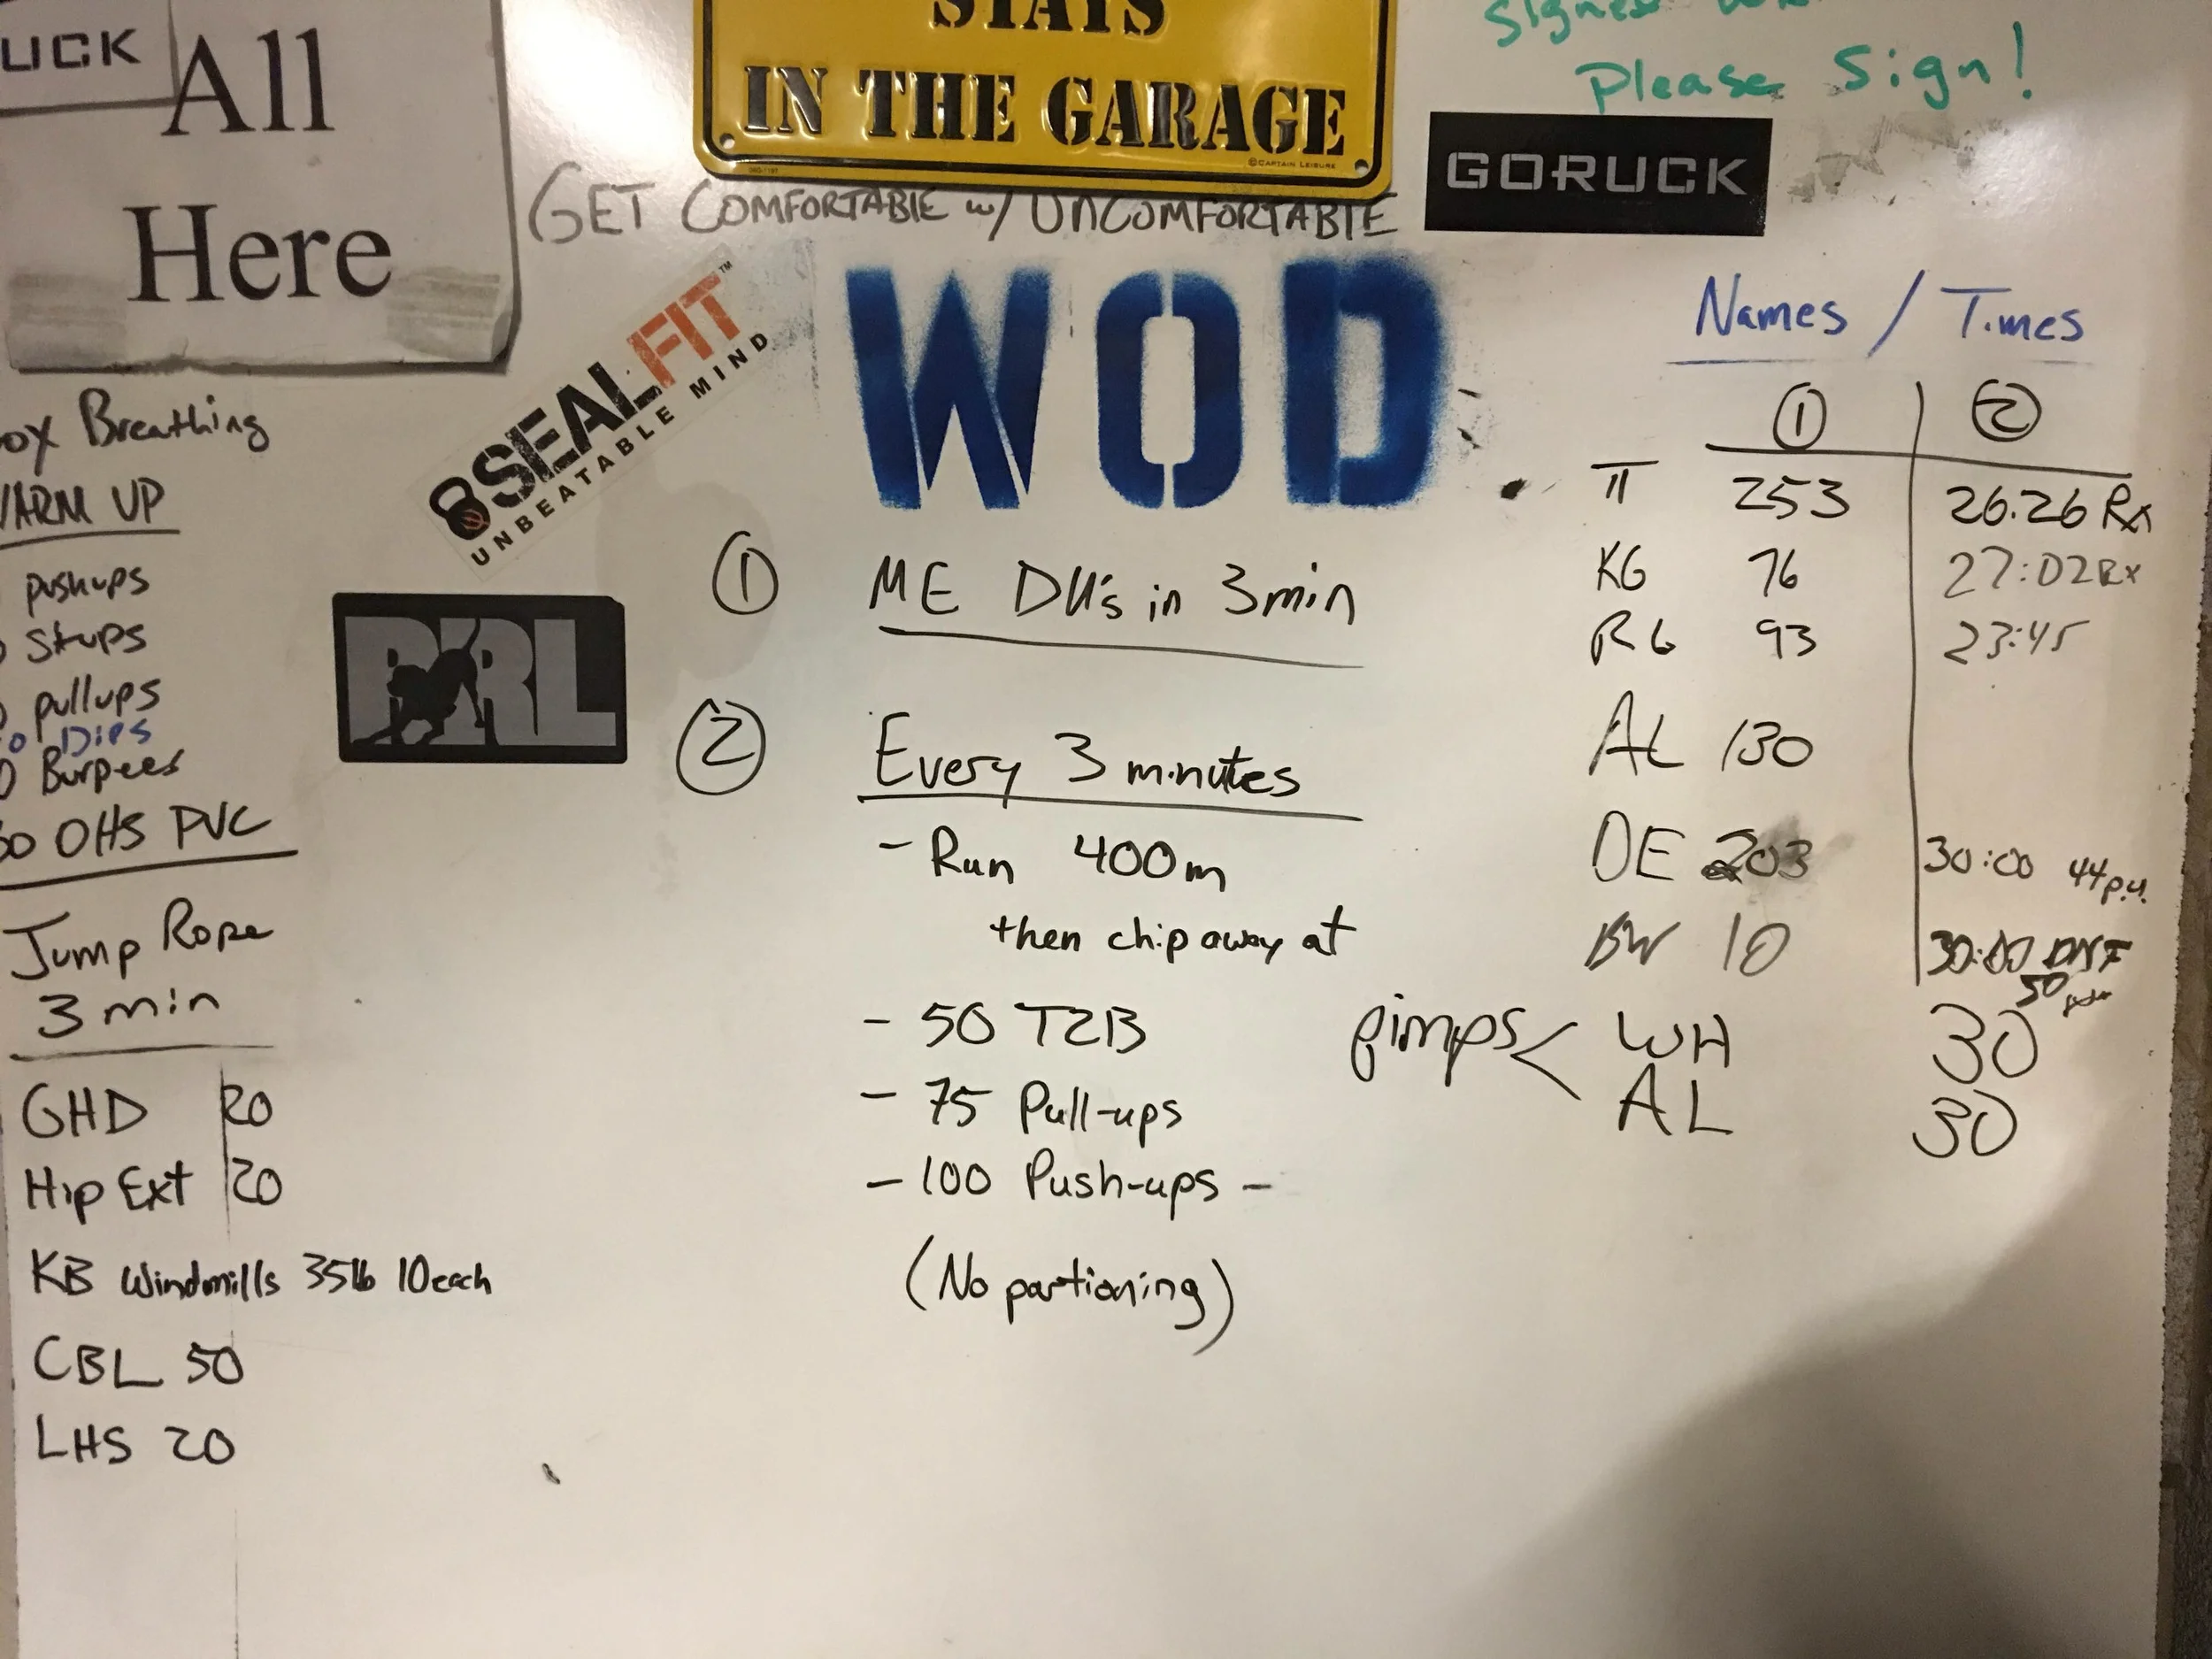 UCK
All
Here
STAYS
IN THE GARAGE
©CAPTAIN LEISURE
Please Sign!
GORUCK
GET COMFORTABLE w/ UNCOMFORTABLE
SEALFIT™
UNBEATABLE MIND
WOD
ox Breathing
WARM UP
pushups
situps
pullups
Dips
Burpees
50 OHS PVC
Jump Rope
3 min
GHD 20
Hip Ext 20
KB Windmills 35lb 10each
CBL 50
LHS 20
① ME DU's in 3min
② Every 3 minutes
- Run 400m
then chip away at
- 50 T2B
- 75 Pull-ups
- 100 Push-ups -
(No partioning)
Names / Times
① ②
π 253 26.26 Rx
KG 76 27:02 Rx
RG 93 23:45
AL 130
DE 203 30:00 44 p.u.
BW 10 30:00 DNF
50
gimps < WH 30
AL 30